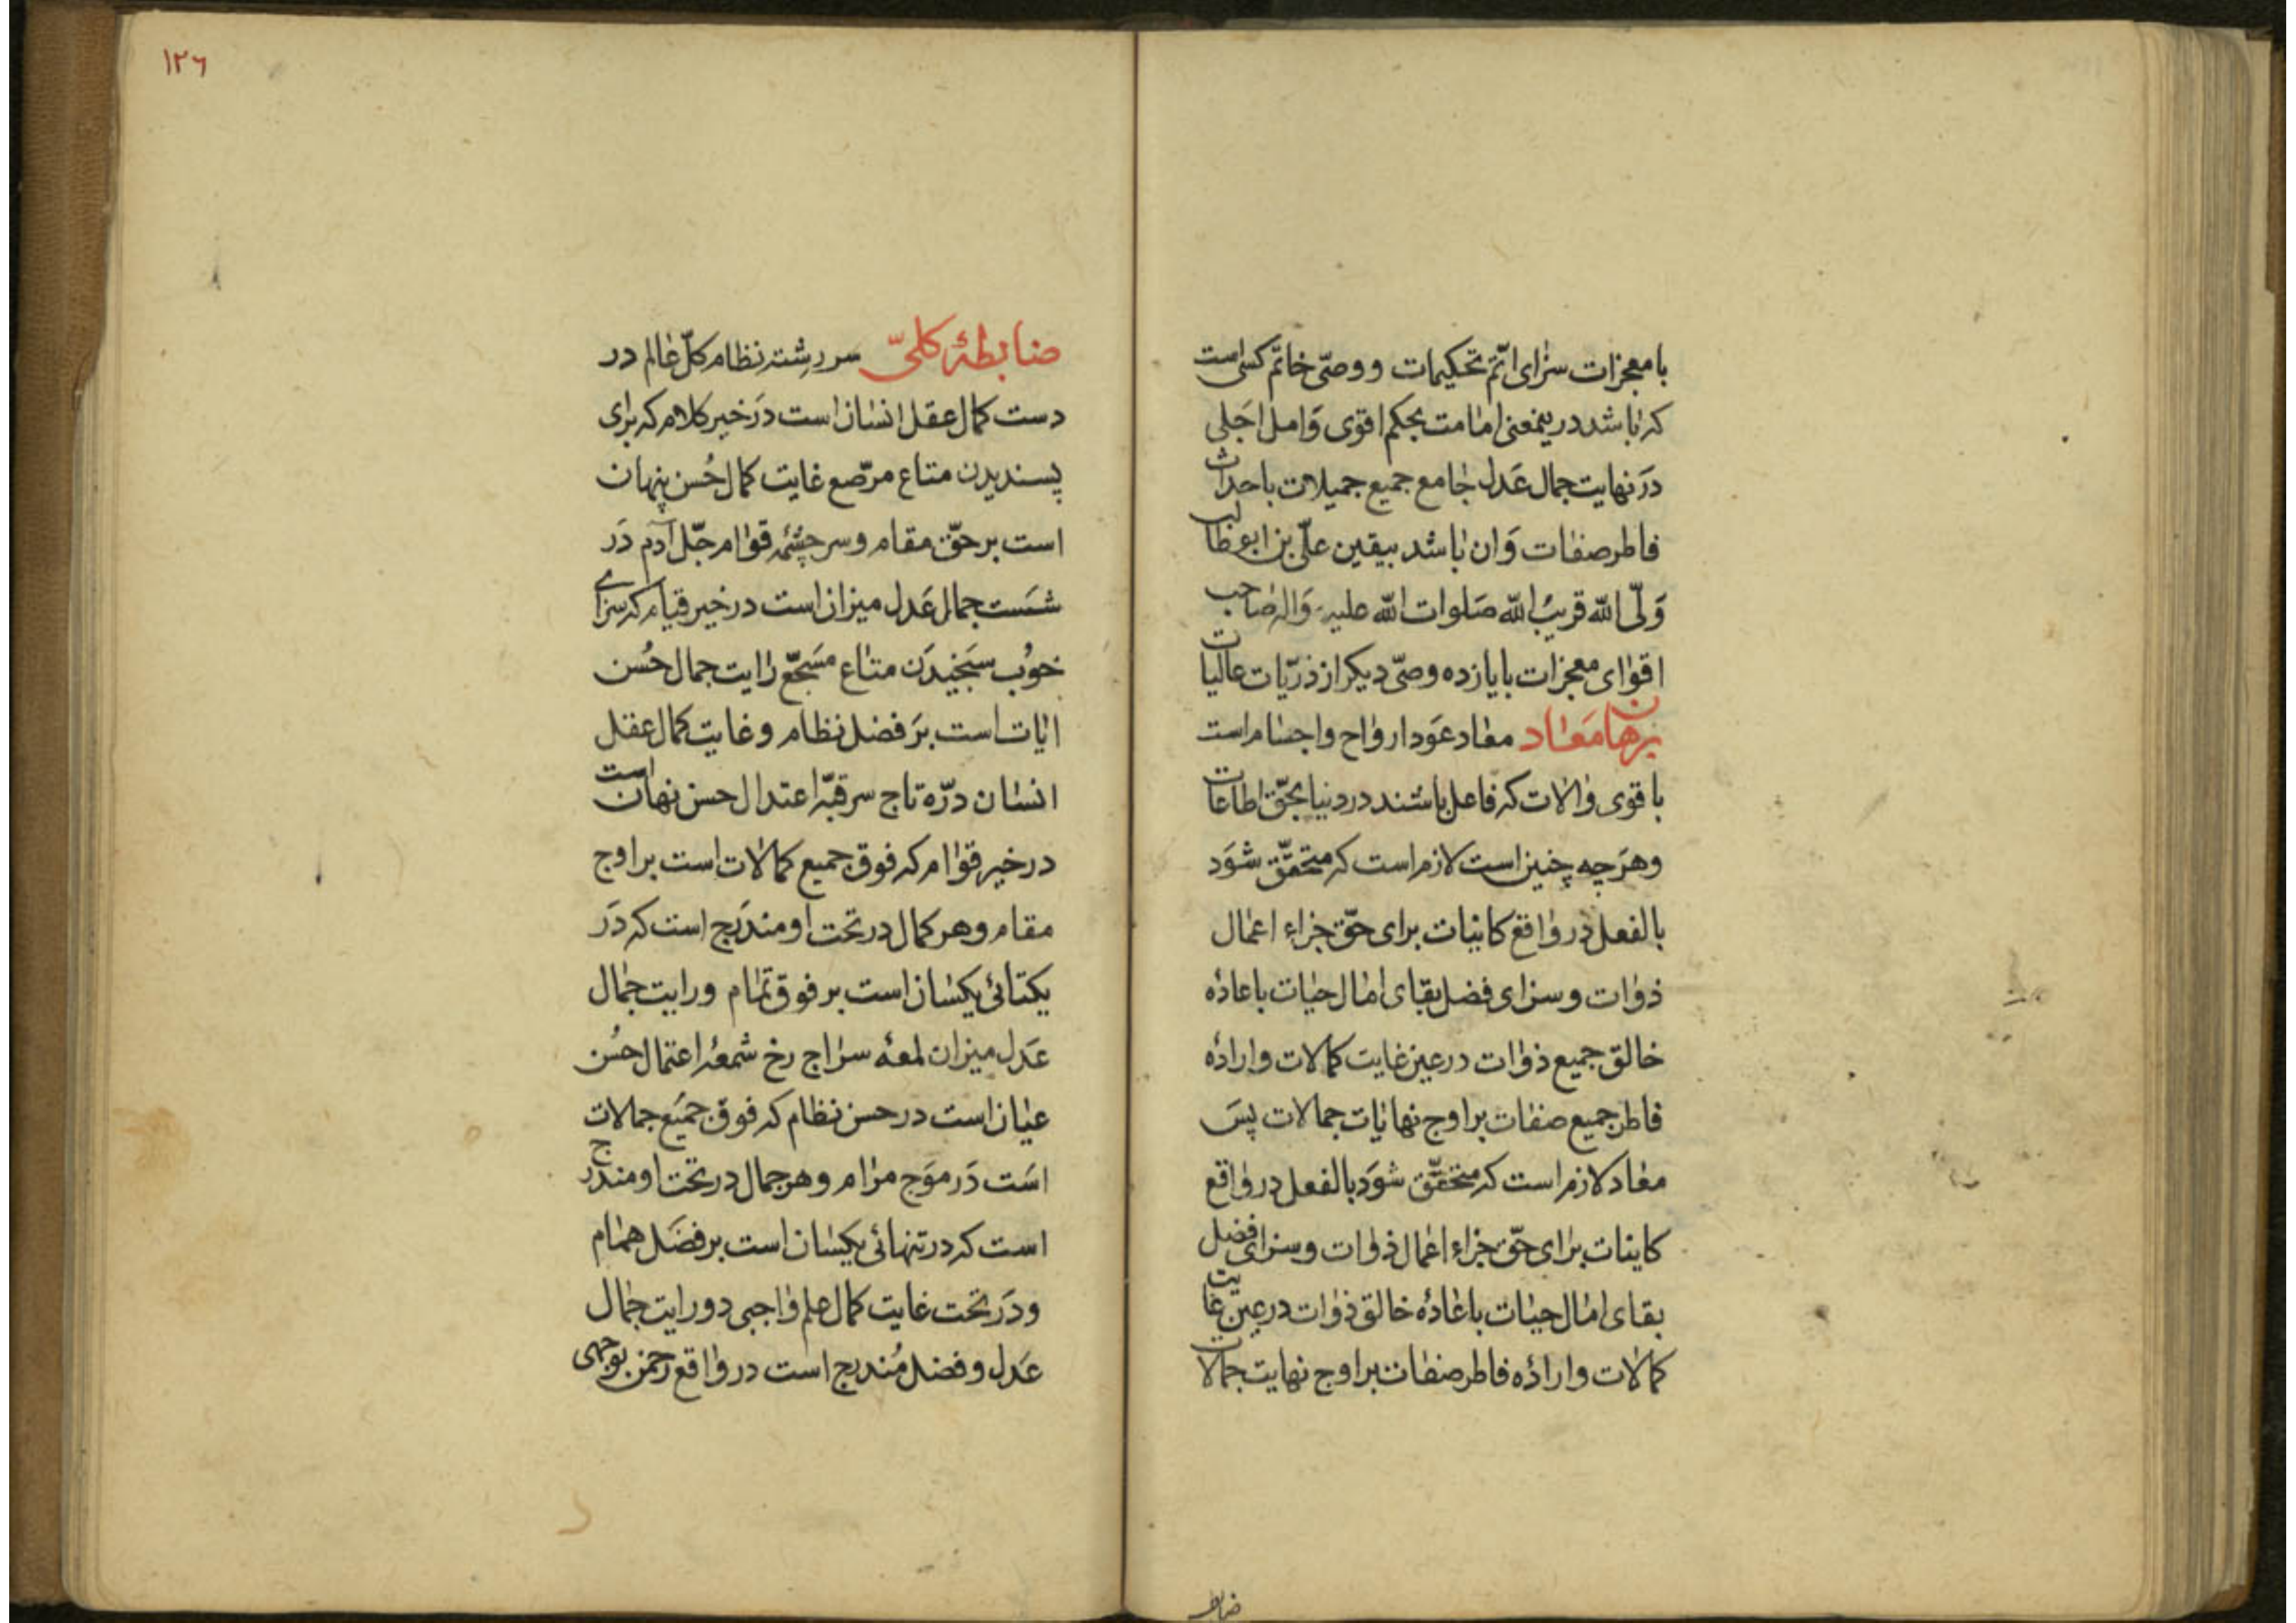 با معجزات سزای اتمّ تحکیمات و وصیّ خاتم کسی است
که باشد درینمعنی امامت بحکم اقوی وَامل اجَلی
دَر نهایت جمال عَدل جامع جمیع جمیلات باحداث
فاطر صفات وَان باشد بیقین علیّ بن ابو طالب
وَلیّ اللّه قریبُ اللّه صَلوات اللّه علیه وَاله صاحب
اقوای معجزات با یازده وصیّ دیکر از ذرّیات عالیات
برهان مَعاد معاد عَود ارواح و اجسام است
با قوی والات که فاعل باشند در دنیا بحقّ اطاعات
وهرَ چه چنین است لازم است که متحقّق شوَد
بالفعل در واقع کاینات برای حقّ جزاء اعمال
ذوات و سزای فضل بقای امال حیات باعادهٔ
خالق جمیع ذوات در عین غایت کمالات و ارادهٔ
فاطر جمیع صفات بر اوج نهایات جمالات پسَ
معاد لازم است که متحقّق شوَد بالفعل در واقع
کاینات برای حقّ جزاء اعمال ذوات و سزای فضل
بقای امال حیات باعادهٔ خالق ذوات در عین غایت
کمالات و ارادهٔ فاطر صفات بر اوج نهایت جمالات
۱۲۶
ضابطهٔ کلیّ سر رشته نظام کلّ عالم در
دست کمال عقل انسان است دَر خیر کلام که برای
پسندیدن متاع مرصّع غایت کمال حُسن پنهان
است بر حقّ مقام و سر چشمه قوام جلّ آدم دَر
شسَت جمال عَدل میزان است در خیر قیام که سزای
خوُب سَنجیدَن متاع مسَجّع رایت جمال حُسن
ایات است برَ فضل نظام و غایت کمال عقل
انسان درّه تاج سر قبّه اعتدال حسن نهان است
در خیر قوام که فوق جمیع کمالات است بر اوج
مقام و هر کمال در تحت او مندَرج است که دَر
یکتائی یکسان است بر فوق تمام و رایت جمال
عَدل میزان لمعه سراج رخ شمعهٔ اعتمال حسُن
عیان است در حسن نظام که فوق جمیَع جمالات
اسَت دَر موَج مرام و هر جمال در تحت او مندرج
است که در تنهائی یکسان است بر فضَل همام
و دَر تحت غایت کمال علم واجبی دو رایت جمال
عَدل و فضل مُندرج است در واقع رحمن بوجهی